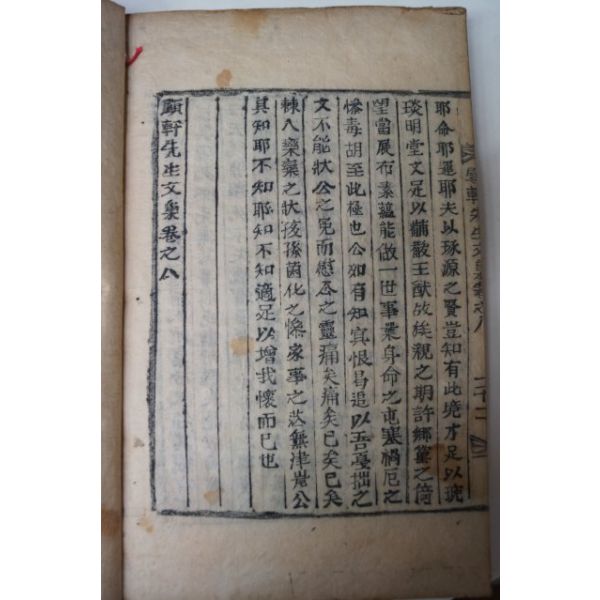 耶命耶運耶夫以琢源之賢豈知有此境才足以琬
琰明堂文足以黼黻王猷故族親之期許鄉黨之倚
望當展布素蘊能做一世事業身命之屯塞禍厄之
慘毒胡至此極也公如有知冥恨曷追以吾憂拙之
文不能狀公之冤而慰公之靈痛矣痛矣已矣已矣
棘人欒欒之狀孩孫菌化之慘家事之茫無津岸公
其知耶不知耶知不知適足以增我懷而已也
軒先生文集卷之八
軒先生文集卷之八